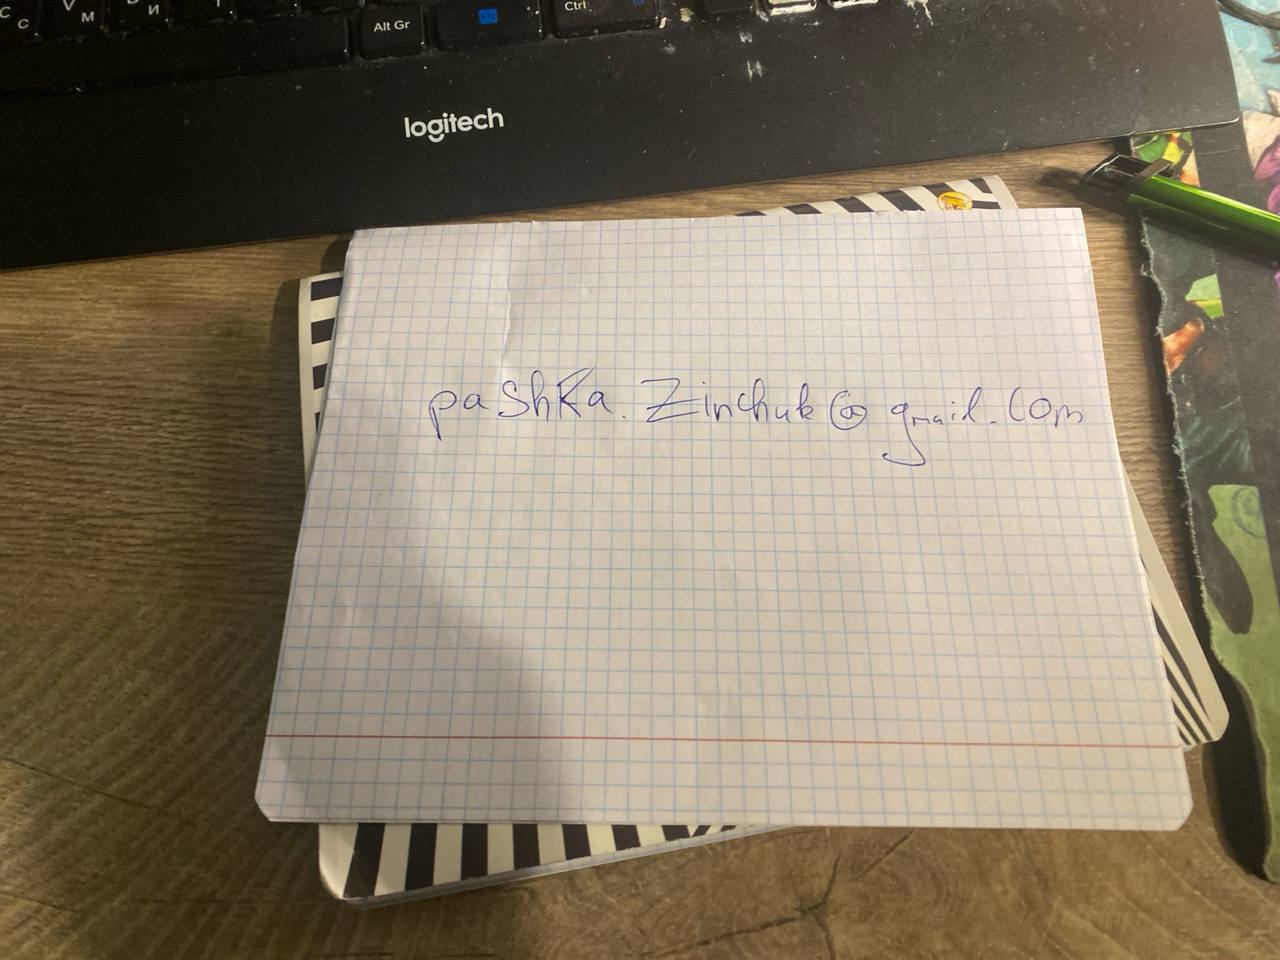 C C V M И
Alt Gr FN Ctrl
logitech
pashka.Zinchuk@gmail.com